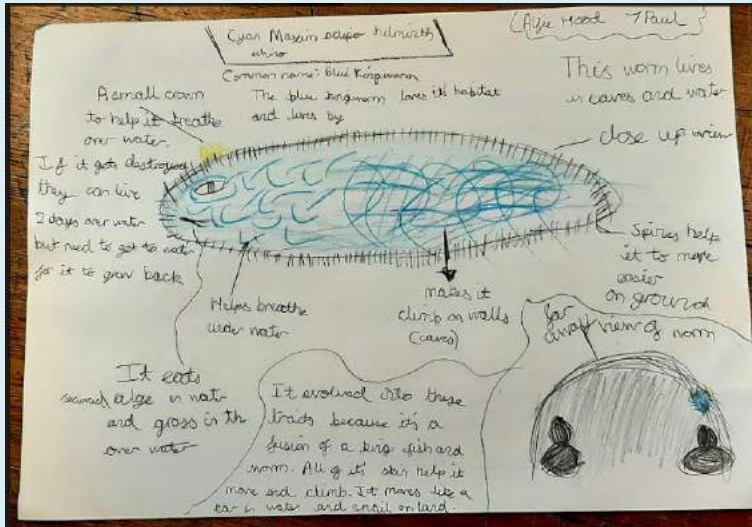 (Alfie Hood 7 Paul)
Cyan Maxim adipo helminth
Common name: Blue Kingworm
The blue kingworm loves it's habitat
and lives by
This worm lives
in caves and water
A small crown
to help it breathe
over water.
If it gets destroyed
they can live
2 days over water
but need to get to water
for it to grow back
close up view
Spires help
it to move
easier
on ground
Helps breathe
under water
makes it
climb on walls
(caves)
far
away view of worm
It eats
alge in water
and grass in th
over water
It evolved into these
traits because it's a
fusion of a king fish and
worm. All of it' skin help it
move and climb. It moves like a
in water and snail on land.